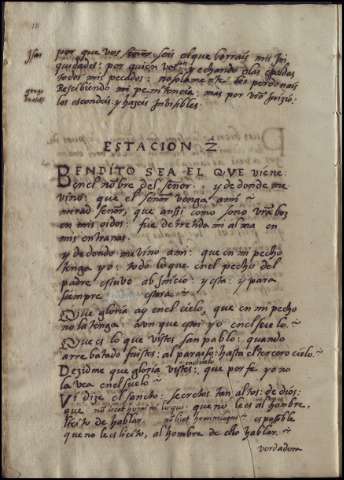 por que vos señor sois el que borrais mis ini
quidades: por quien vos y echando a las espaldas
todos mis pecados: no solamente los perdonais
Resçibiendo mi penitençia mas por vro
los escondeis y hazeis inbisibles.
ESTACION 2
BENDITO SEA EL QVE viene
en el nõbre del señor: y de donde me
vino: que el señor venga a mi ~
mirad señor, que ansi como sono vra boz
en mis oidos: fue derretida mi alma en
mis entranas
y de donde me vino a mi: que en mi pecho
tenga yo: todo lo que en el pecho del
padre estuvo ab iniçio: y esta: y para
siempre estara ~
Que gloria ay en el cielo, que en mi pecho
no la tenga: avn que estoy yo en el suelo. ~
Que es lo que vistes san pablo: quando
arrebatado fuistes: al paraiso: hasta el terçero cielo. ~
Dezidme que gloria vistes: que por fe yo no
la vea en el suelo ~
Vi dize el sancto: secretos tan altos: de dios:
que que no le es al hombre,
liçito de hablar. es posible
que no le es liçito, al hombre de ello hablar. ~
verdadera